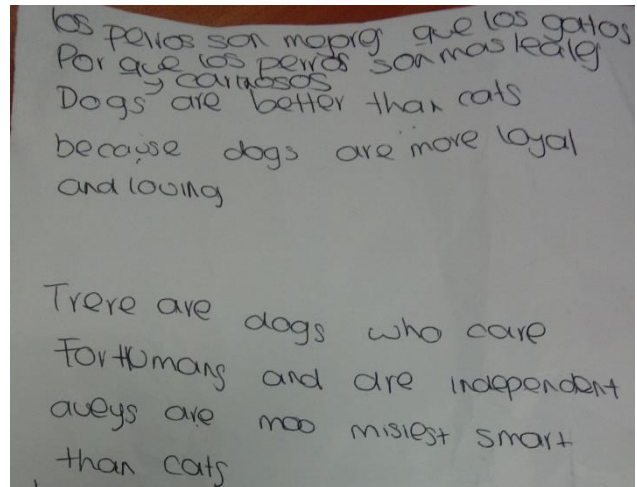 los perros son mopres que los gatos
Por que los perros son mas leales
y cariñosos
Dogs are better than cats
because dogs are more loyal
and loving
Trere are dogs who care
For Humans and are independent
aveys are moo misiest smart
than cats